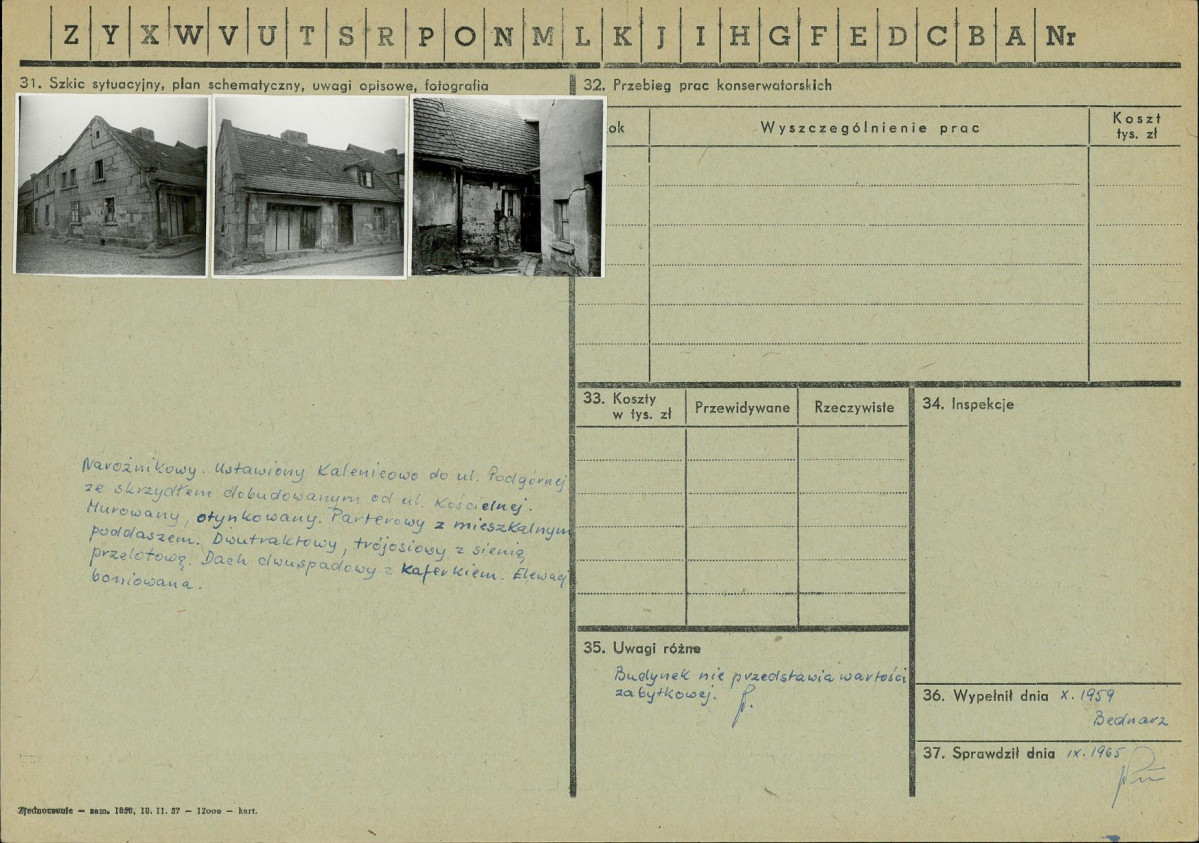 Z Y X W V U T S R P O N M L K J I H G F E D C B A Nr
31. Szkic sytuacyjny, plan schematyczny, uwagi opisowe, fotografia
Narożnikowy. Ustawiony Kalenicowo do ul. Podgórnej
ze skrzydłem dobudowanym od ul. Kościelnej.
Murowany, otynkowany. Parterowy z mieszkalnym
poddaszem. Dwutraktowy, trójosiowy z sienią
przelotową. Dach dwuspadowy z kaferkiem. Elewacj
boniowana.
32. Przebieg prac konserwatorskich
ok
Wyszczególnienie prac
Koszt
tys. zł
33. Koszty
w tys. zł
Przewidywane
Rzeczywiste
34. Inspekcje
35. Uwagi różne
Budynek nie przedstawia wartości
zabytkowej.
36. Wypełnił dnia X. 1959
Bednarz
37. Sprawdził dnia IX. 1965
Zjednoczenie — zam. 1856, 10. II. 57 — 12000 — kart.